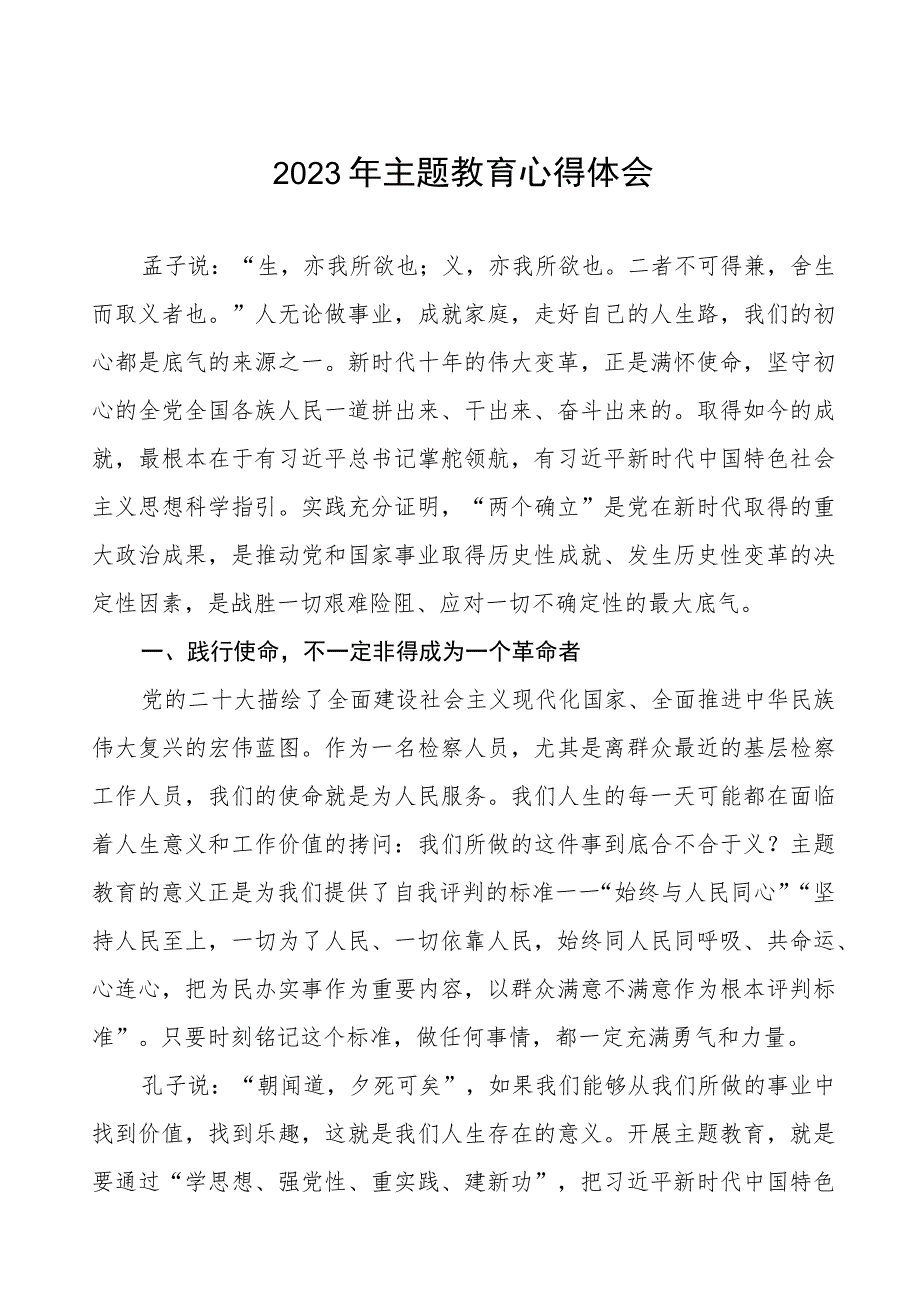 2023年主题教育心得体会
孟子说：“生，亦我所欲也；义，亦我所欲也。二者不可得兼，舍生
而取义者也。”人无论做事业，成就家庭，走好自己的人生路，我们的初
心都是底气的来源之一。新时代十年的伟大变革，正是满怀使命，坚守初
心的全党全国各族人民一道拼出来、干出来、奋斗出来的。取得如今的成
就，最根本在于有习近平总书记掌舵领航，有习近平新时代中国特色社会
主义思想科学指引。实践充分证明，“两个确立”是党在新时代取得的重
大政治成果，是推动党和国家事业取得历史性成就、发生历史性变革的决
定性因素，是战胜一切艰难险阻、应对一切不确定性的最大底气。
一、践行使命，不一定非得成为一个革命者
党的二十大描绘了全面建设社会主义现代化国家、全面推进中华民族
伟大复兴的宏伟蓝图。作为一名检察人员，尤其是离群众最近的基层检察
工作人员，我们的使命就是为人民服务。我们人生的每一天可能都在面临
着人生意义和工作价值的拷问：我们所做的这件事到底合不合于义？主题
教育的意义正是为我们提供了自我评判的标准一一“始终与人民同心”“坚
持人民至上，一切为了人民、一切依靠人民，始终同人民同呼吸、共命运、
心连心，把为民办实事作为重要内容，以群众满意不满意作为根本评判标
准”。只要时刻铭记这个标准，做任何事情，都一定充满勇气和力量。
孔子说：“朝闻道，夕死可矣”，如果我们能够从我们所做的事业中
找到价值，找到乐趣，这就是我们人生存在的意义。开展主题教育，就是
要通过“学思想、强党性、重实践、建新功”，把习近平新时代中国特色